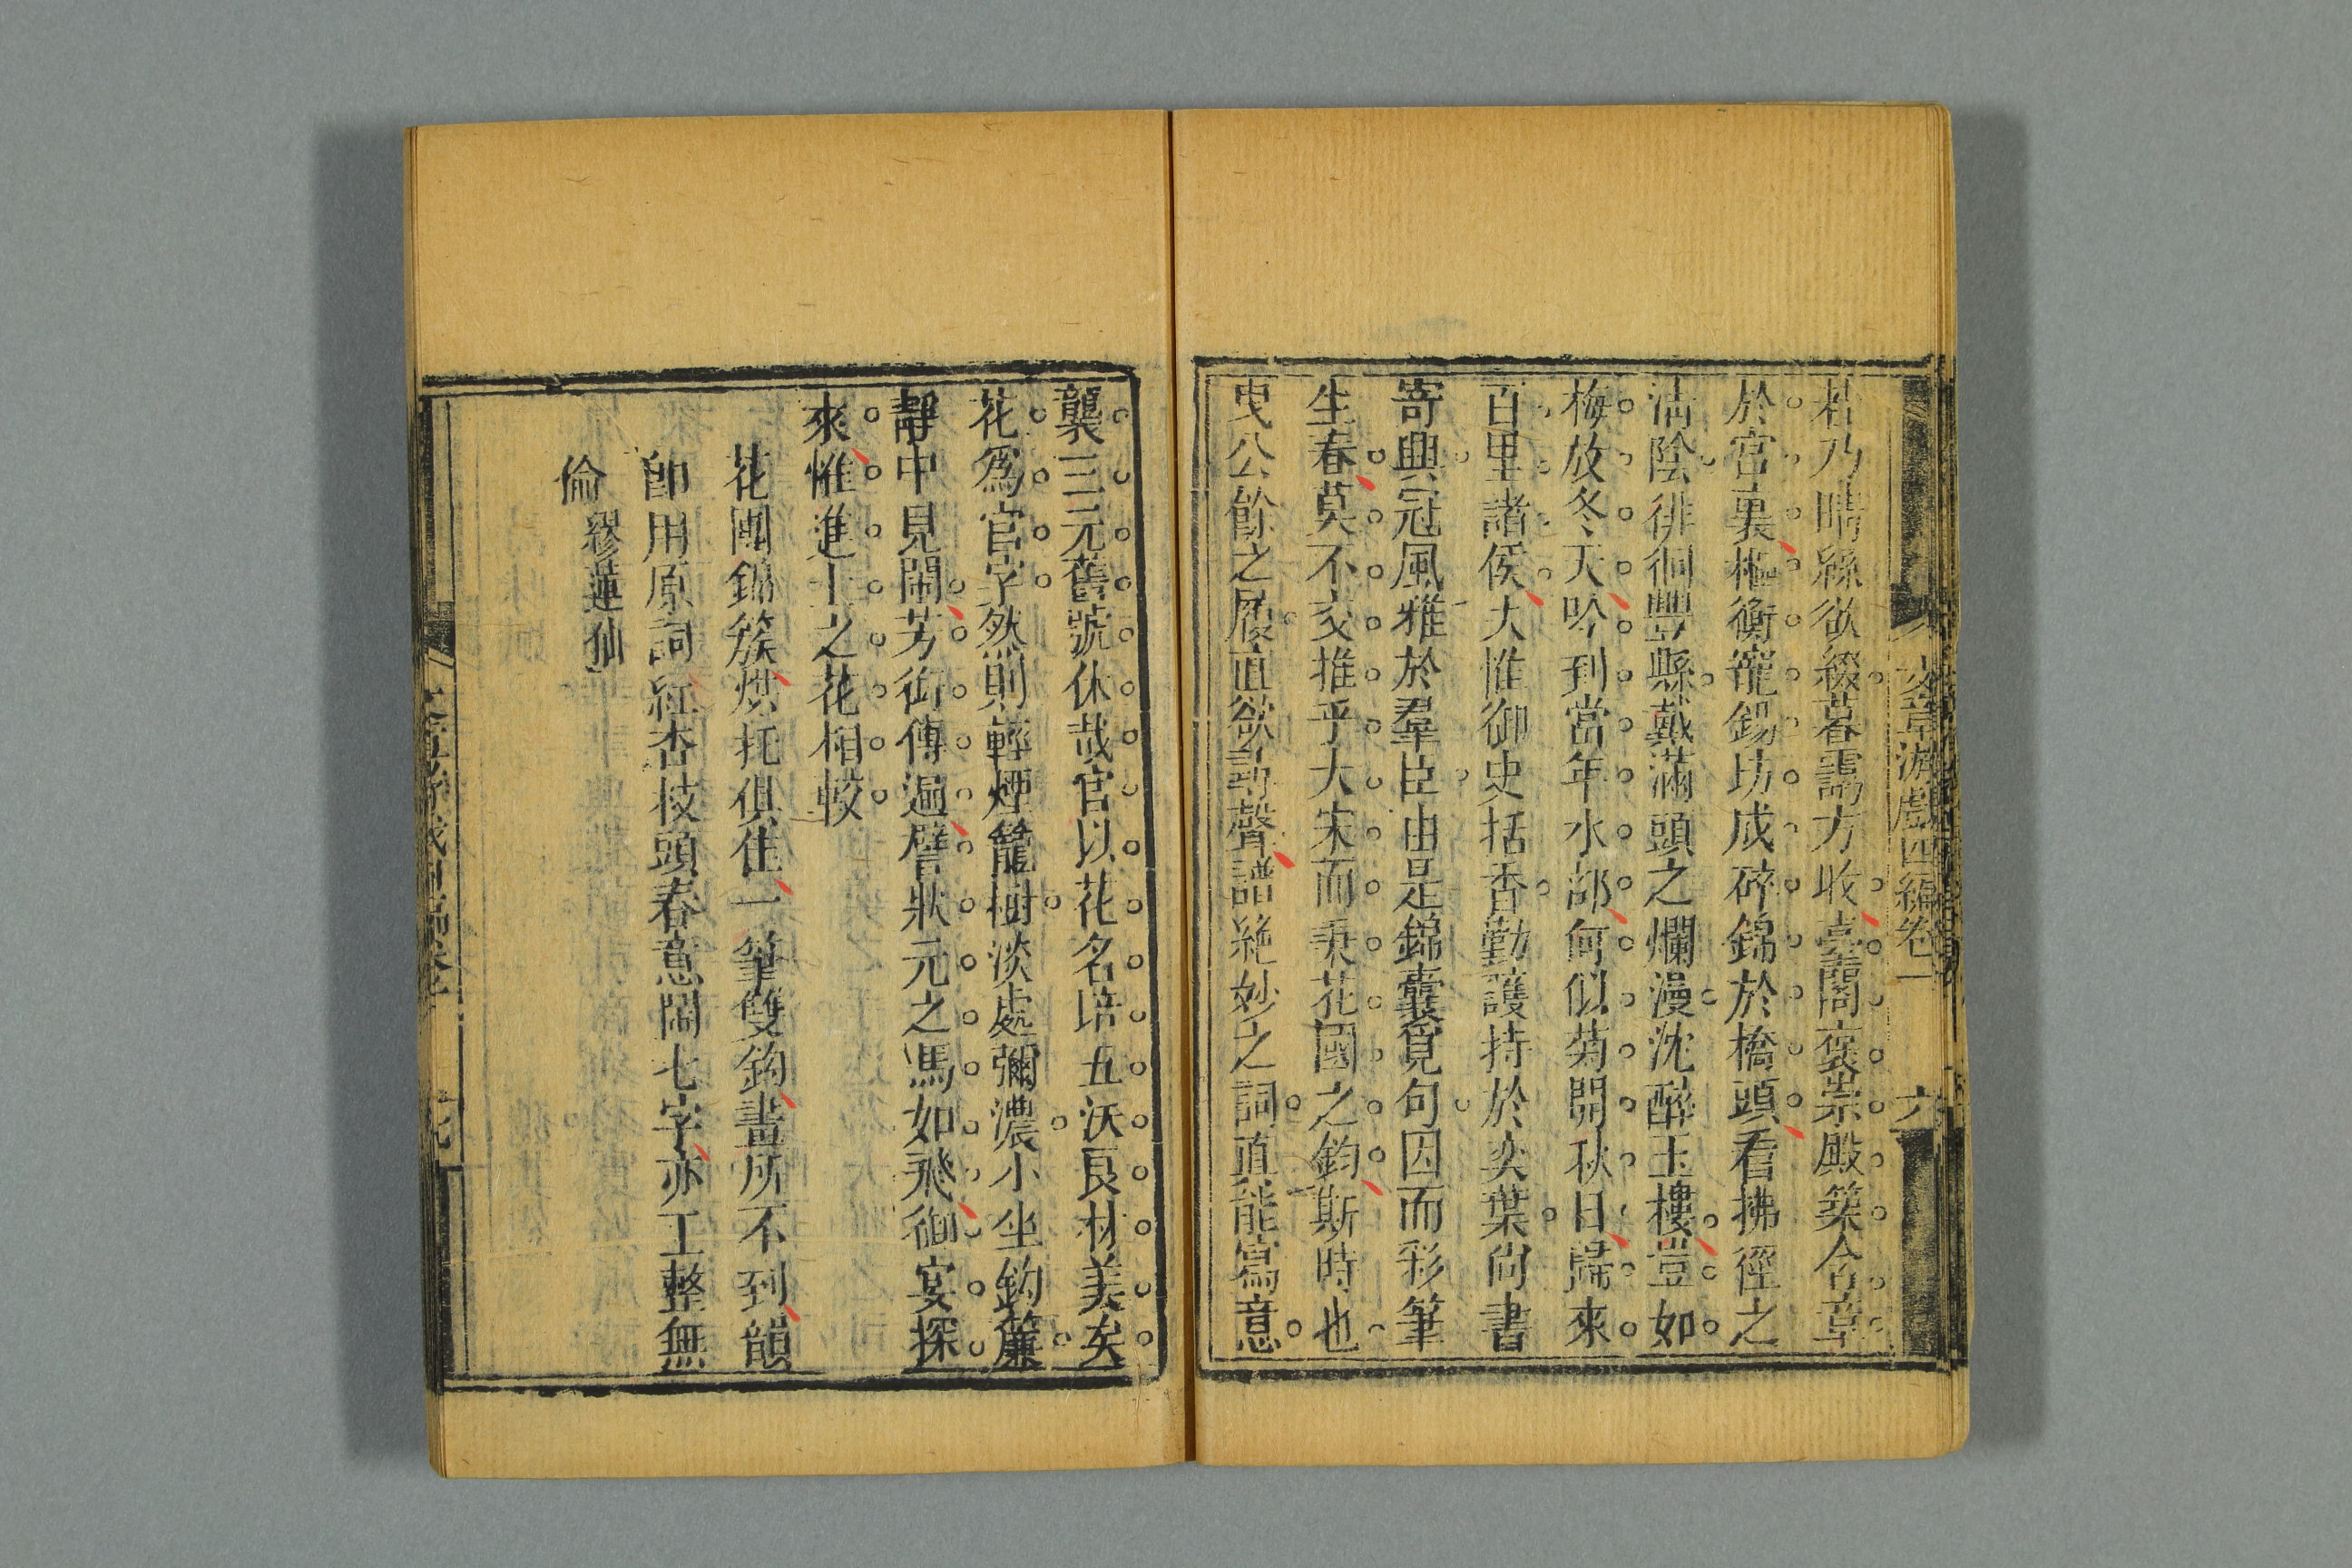 文章游戲四編卷一
六
若乃晴絲欲綴暮靄方收臺閣褒崇殿築含章
於宮裏樞衡寵錫坊成碎錦於橋頭看拂徑之
清陰徘徊豐縣戴滿頭之爛漫沈醉玉樓豈如
梅放冬天吟到當年水部何似菊開秋日歸來
百里諸侯大惟御史括香勤護持於奕葉尙書
寄興冠風雅於羣臣由是錦囊覓句因而彩筆
生春莫不交推乎大宋而秉花國之鈞斯時也
曳公餘之履直欲尋聲譜絶妙之詞眞能寫意
襲三元舊號休哉官以花名培五沃良材美矣
花爲官字然則輕煙籠樹淡處彌濃小坐鈎簾
靜中見鬧芳街傳遍譬狀元之馬如飛御宴探
來惟進士之花相較
花團錦簇烘托俱佳一筆雙鈎畫所不到韻
卽用原詞紅杏枝頭春意鬧七字亦工整無
倫繆蓮仙